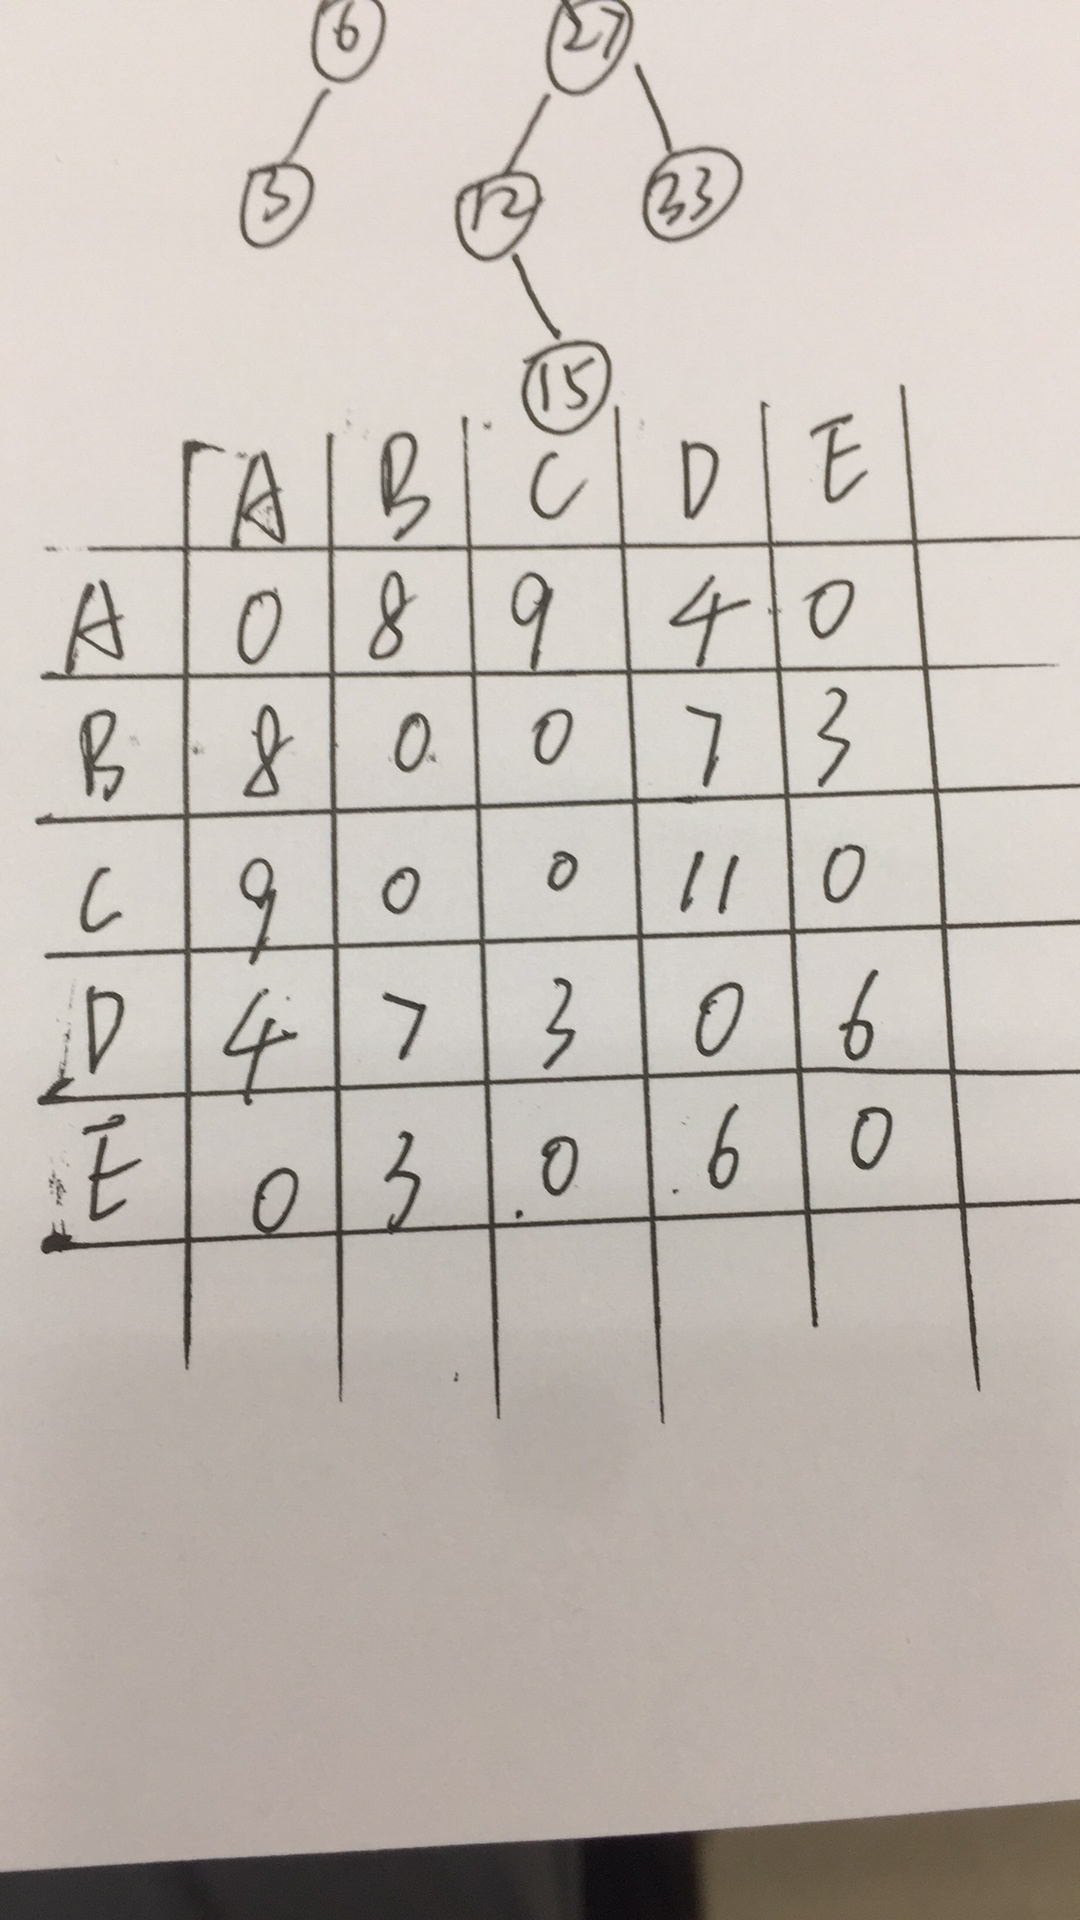 6 27
3 12 33
15
A B C D E
A 0 8 9 4 0
B 8 0 0 7 3
C 9 0 0 11 0
D 4 7 3 0 6
E 0 3 0 6 0